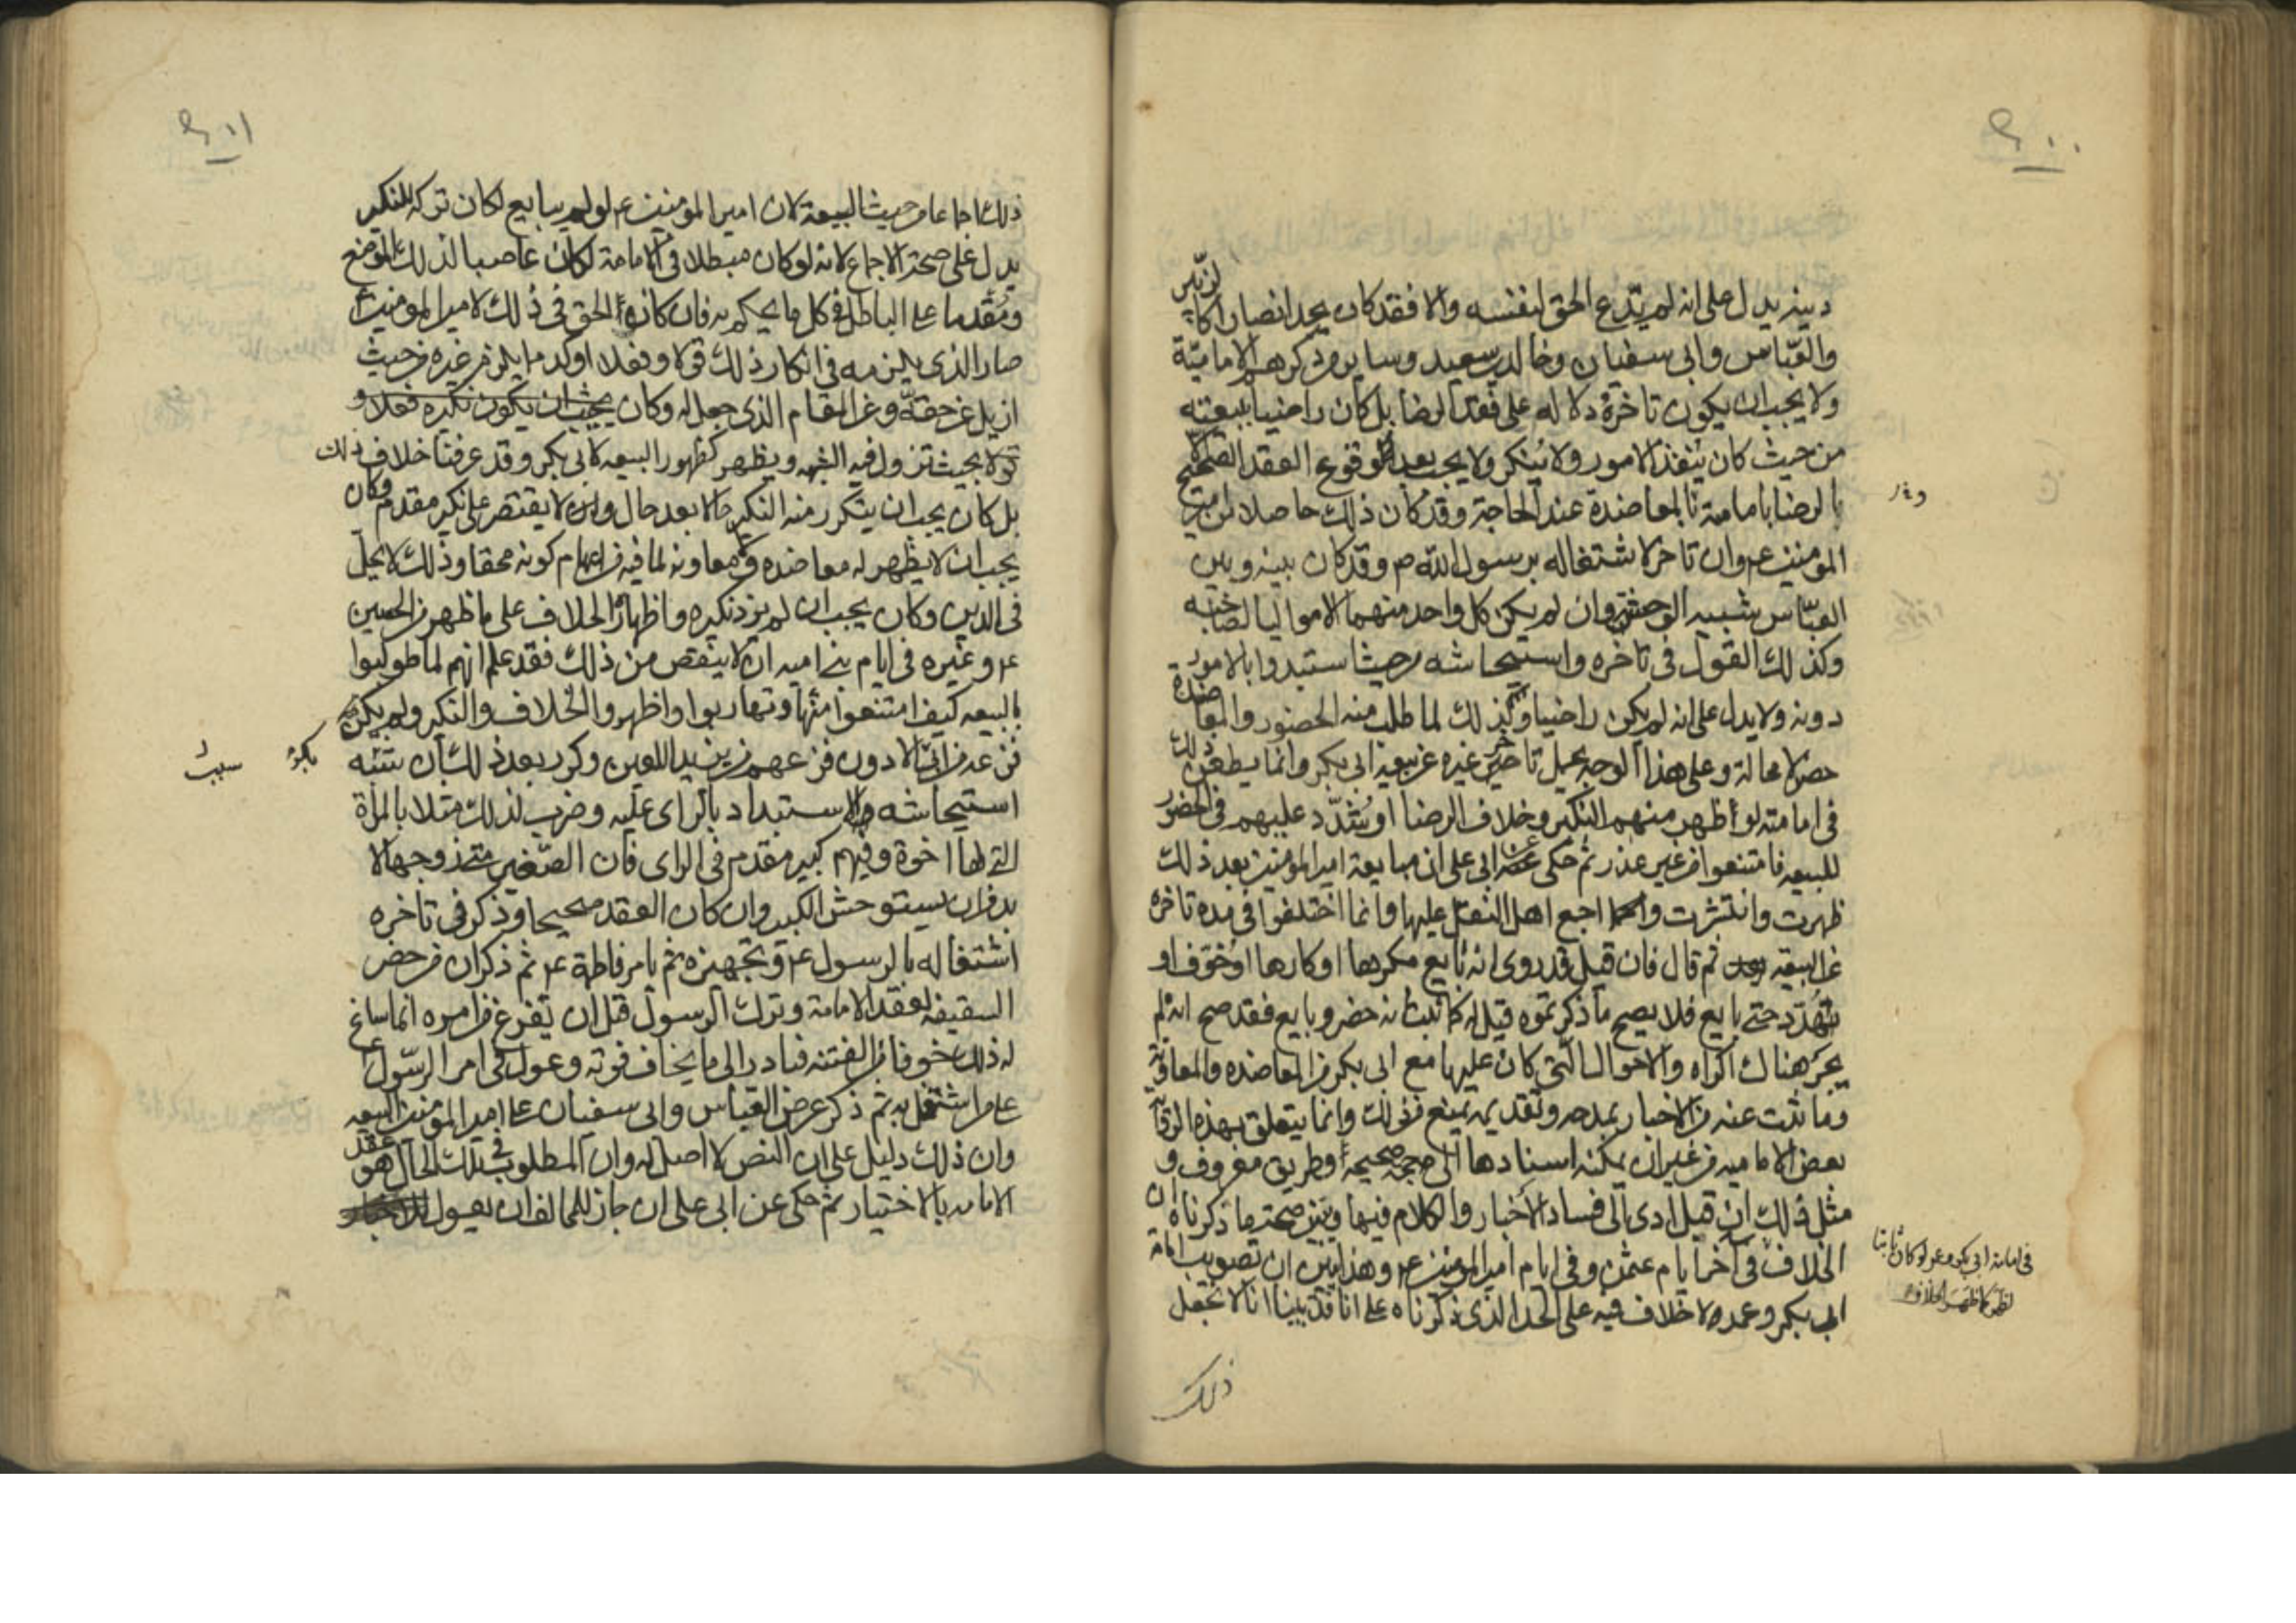 دينه يدل على انه لم يدع الحق لنفسه والا فقد كان يجد انصارا كالزبير
والعباس وابي سفيان وخالد بن سعيد وساير من ذكرهم الامامية
ولا يجب ان يكون تاخره دلالة على فقد الرضا بل كان راضيا ببيعته
من حيث كان ينفذ الامور ولا ينكر ولا يجب بعد وقوع العقد الصحيح
بالرضا بامامته المعاضدة عند الحاجة وقد كان ذلك حاصلا من امير
المؤمنين ع وان تاخر لاشتغاله برسول الله ص وقد كان بينه وبين
العباس شبيه الوحشة وان لم يكن كل واحد منهما الا مواليا لصاحبه
وكذلك القول في تاخره واستيحاشه من حيث استبدوا بالامور
دونه ولا يدل على انه لم يكن راضيا ولذلك لما طلب منه الحضور والمعاضدة
حضر لا محالة وعلى هذا الوجه يحمل تاخر غيره عن بيعة ابي بكر وانما يطعن ذلك
في امامته لو اظهر منهم النكير وخلاف الرضا او يشدد عليهم في الحضور
للبيعة فامتنعوا من غير عذر ثم حكى عن ابي على ان مبايعة امير المؤمنين بعد ذلك
ظهرت وانتشرت واجمع اهل النقل عليها وانما اختلفوا في مدة تاخره
عن البيعة ثم قال فان قيل قد روى انه بايع مكرها او كارها او خوف او
تهدد حتى بايع فلا يصح ما ذكرتموه قيل له كما ثبت انه حضر وبايع فقد صح انه لم
يجر هناك اكراه والاحوال التي كان عليها مع ابي بكر من المعاضده والمعاونة
وما ثبت عنه من الاخبار بمدحه وتقديمه يمنع من ذلك وانما يتعلق بهذه الرواية
بعض الامامية من غير ان يمكنه اسنادها الى حجة صحيحة او طريق معروف و
مثل ذلك ان قيل ادى الى فساد الاخبار والكلام فيها ويبين صحة ما ذكرناه ان
الخلاف في آخر ايام عثمن وفي ايام امير المؤمنين ع وهذا يبين ان تصويب امامة
ابي بكر وعمر لا خلاف فيه على الحد الذي ذكرناه على انا قد بينا انا لا نجعل
في امامة ابي بكر وعمر لو كان ثابتا
لظهر كما ظهر الخلاف
ذلك
ذلك اجماعا من حيث البيعة لان امير المؤمنين ع لو لم يبايع لكان تركه النكير
يدل على صحة الاجماع لانه لو كان مبطلا في الامامة لكان غاصبا لذلك الموضع
ومقدما على الباطل في كل ما يحكم به فان كان الحق في ذلك لامير المؤمنين
صار الذي يلزمه في انكار ذلك قولا وفعلا اوكد ما يلزم غيره من حيث
ازيل عن حقه وعن المقام الذي جعل له وكان يجب ان يكون نكيره فعلا و
قولا بحيث تزول فيه الشبهه ويظهر كظهور البيعه لابي بكر وقد عرفنا خلاف ذلك
بل كان يجب ان يتكرر منه النكير حالا بعد حال وان لا يقتصر على نكير مقدم وكان
يجب ان لا يظهر له معاضده ومعاونه لما فيه من ايهام كونه محقا وذلك لا يحل
في الدين وكان يجب ان لم يزد نكيره واظهار الخلاف على ما ظهر من الحسين
ع وغيره في ايام بني اميه ان لا ينقص من ذلك فقد علم انهم لما طولبوا
بالبيعه كيف امتنعوا منها وتهاربوا واظهروا الخلاف والنكير ولم يكن
فزعه من ابي الا دون فزعهم من يزيد اللعين وكرر بعد ذلك بان سببه
استيحاشه والاستبداد بالراى عليه وضرب لذلك مثلا بالمراة
التي لها اخوة وفيهم كبير مقدم في الراى فان الصغير متى زوجها لا
بد من ان يستوحش الكبير وان كان العقد صحيحا وذكر في تاخره
اشتغاله بالرسول ع وتجهيزه ثم بامر فاطمة ع ثم ذكر ان من حضر
السقيفه لعقد الامامة وترك الرسول قبل ان يفرغ من امره انما ساغ
له ذلك خوفا من الفتنه فبادر الى ما يخاف فوته وعول في امر الرسول ع
على من اشتغل به ثم ذكر عرض العباس وابي سفيان على امير المؤمنين البيعه
وان ذلك دليل على ان النص لا اصل له وان المطلوب في تلك الحال هو عقد
الامامه بالاختيار ثم حكى عن ابي على ان جاز للمخالف ان يقول